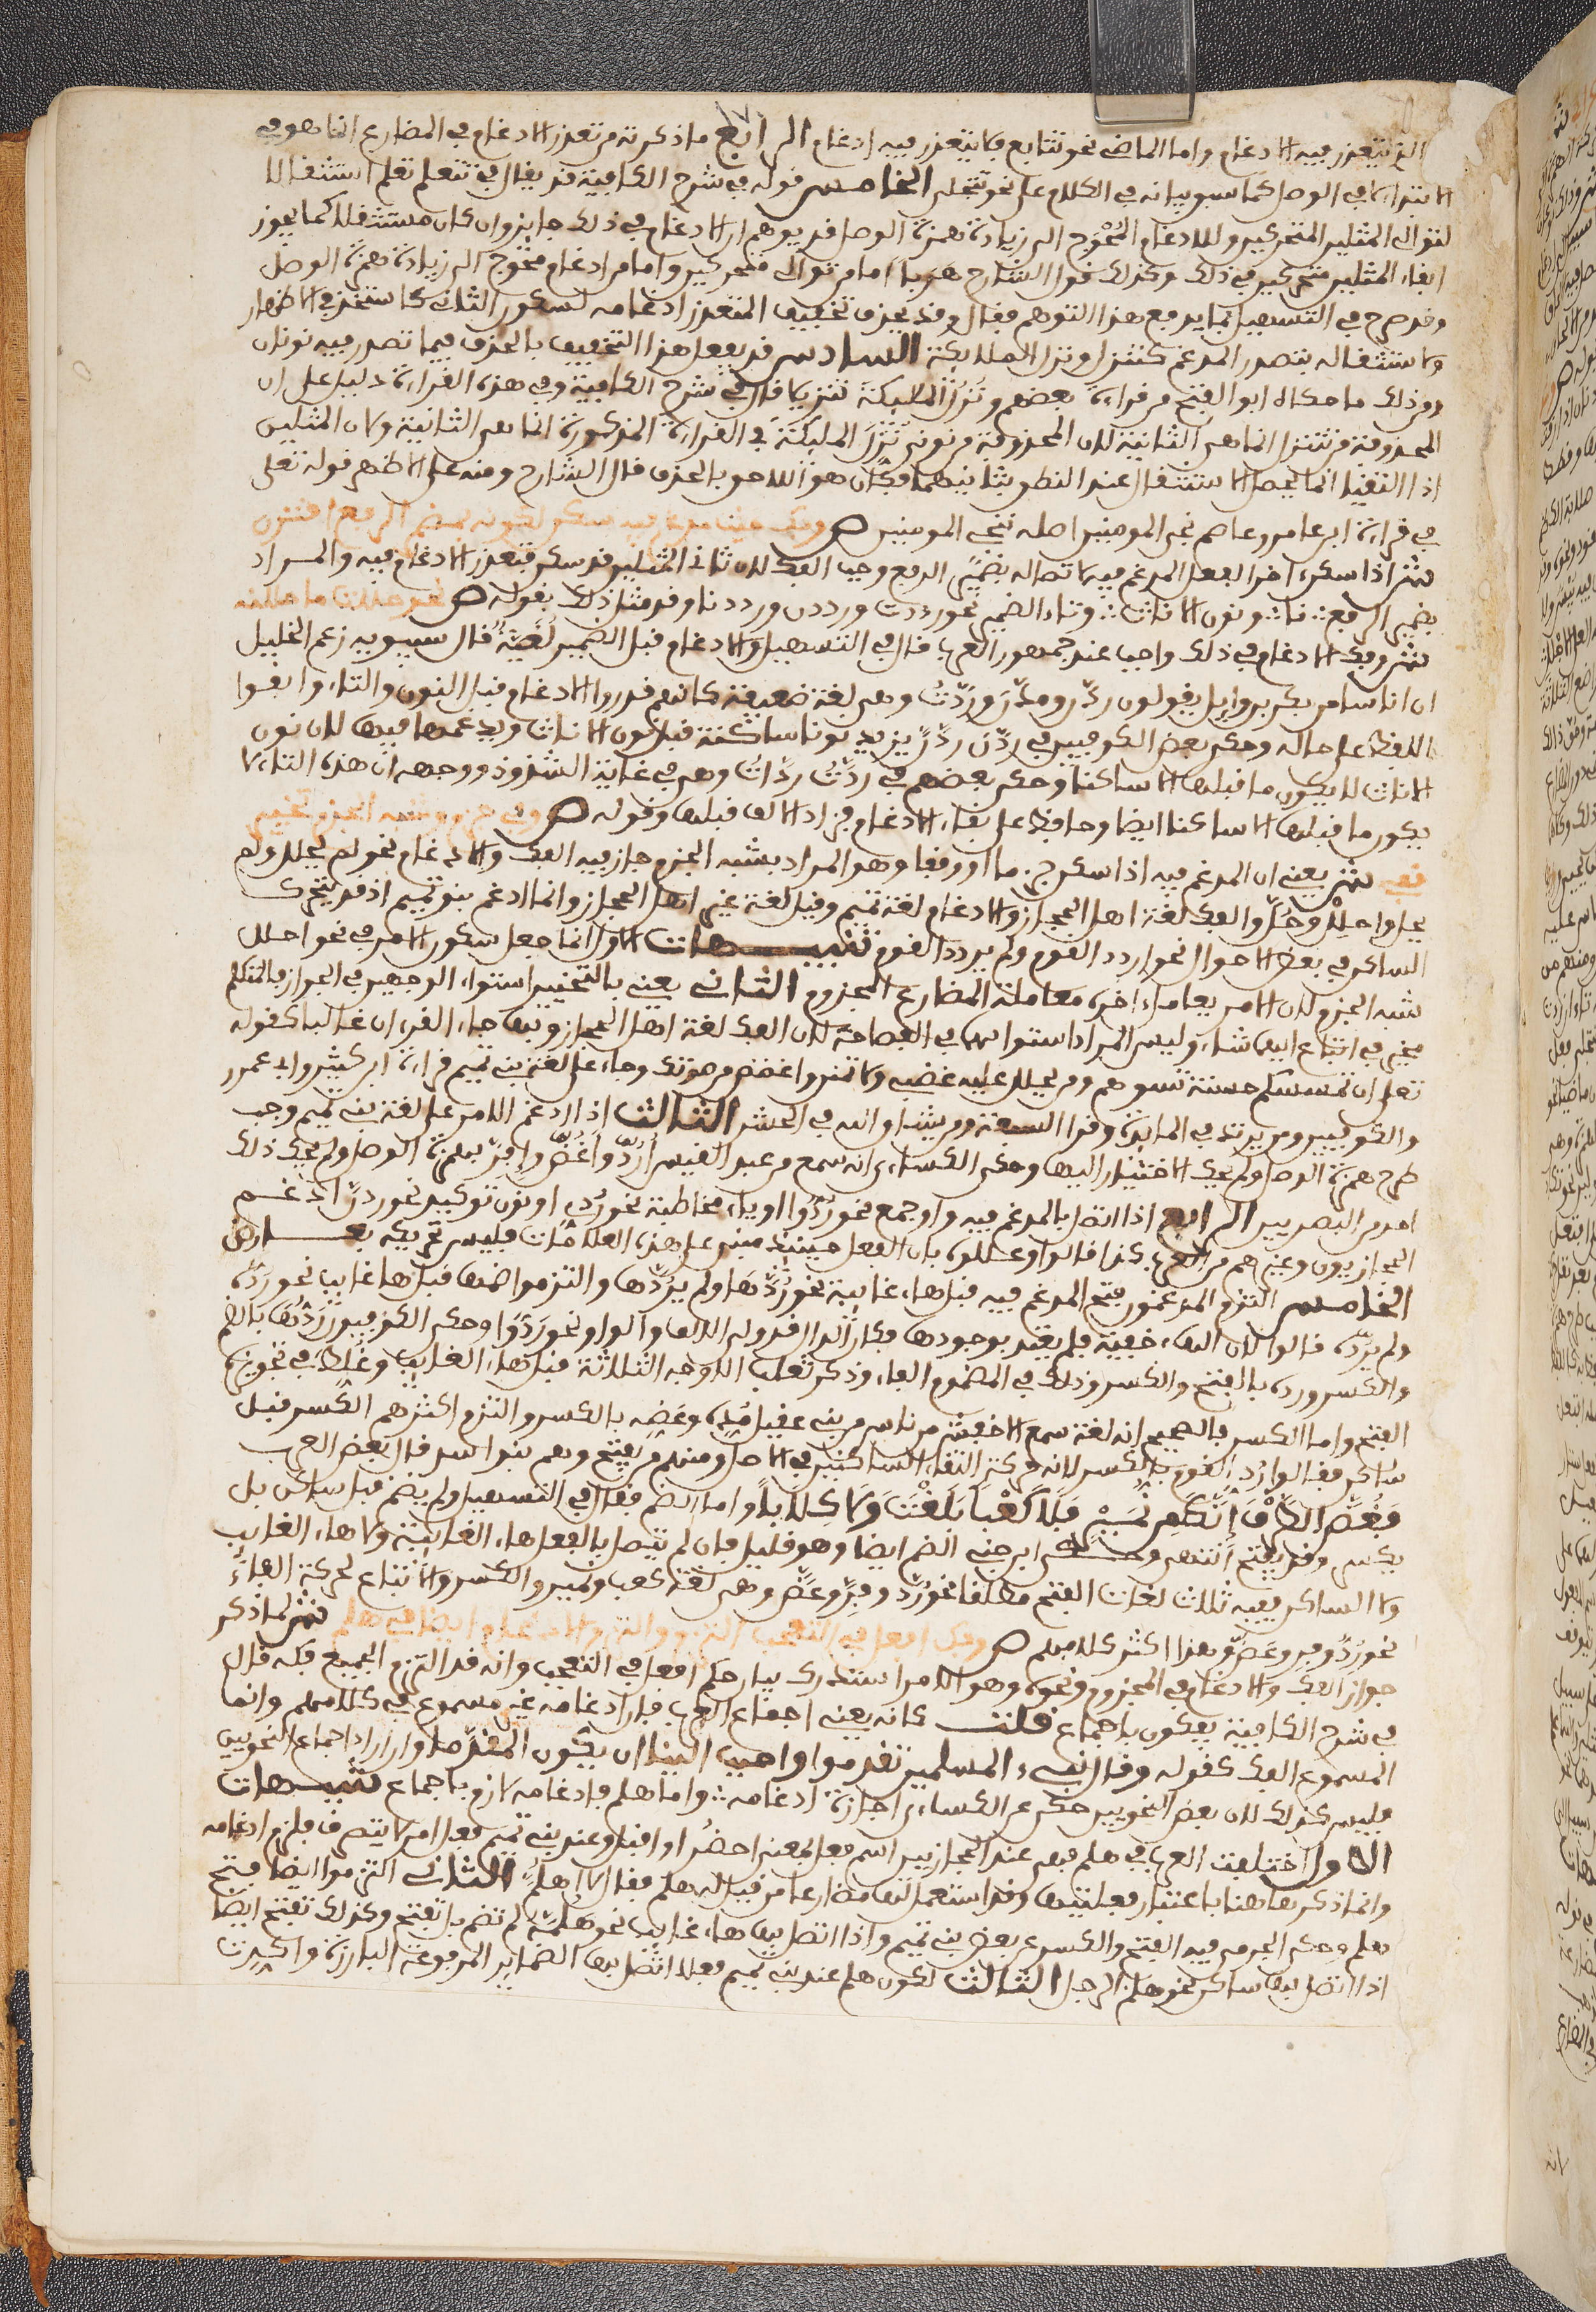 الذي يتعذر فيه الادغام واما الماضي نحو تتابع فلا يتعذر فيه ادغام الرابع ما ذكرته من تعذر الادغام في المضارع انما هو في
الابتداء لا في الوصل كما سبق بيانه في الكلام على نحو تتجلى الخامس قوله في شرح الكافية قد يقال في تتعلم تعلم استثقالا
لتوالي المثلين المتحركين وللادغام المُحْوِج الى زيادة همزة الوصل قد يوهم ان الادغام في ذلك جايز وان كان مستثقلا كما يجوز
ابقاء المثلين متحركين في ذلك وكذلك قول الشارح هربا اما من توالي متحركين واما من ادغام محوج الى زيادة همزة الوصل
وقد صرح في التسهيل بما يدفع هذا التوهم فقال وقد يحذف تخفيف المتعذر ادغامه لسكون الثاني كاستخذ في الاظهار
ولاستثقاله بتصدر المدغم كتنزل ونزل الملايكة السادس قد يفعل هذا التخفيف بالحذف فيما تصدر فيه نونان
ومن ذلك ما حكاه ابو الفتح من قراءة بعضهم ونُزِّلُ المليكةَ تنزيلا قال في شرح الكافية وفي هذه القراءة دليل على ان
المحذوفة من تتنزل انما هي الثانية لان المحذوفة من نوني نُنَزِّلُ المليكة في القراءة المذكورة انما هي الثانية ولان المثلين
اذا التقيا انما يحصل الاستثقال عند النطق بثانيهما فكان هو الاحق بالحذف قال الشارح ومنه على الاظهر قوله تعلى
في قراءة ابن عامر وعاصم نجي المومنين اصله ننجي المومنين ص وفك حيث مدغم فيه سكن لكونه بمضمر الرفع اقترن
ش اذا سكن اخر الفعل المدغم فيه لاتصاله بضمير الرفع وجب الفك لان ثاني المثلين قد سكن فتعذر الادغام فيه والمراد
بضمير الرفع نا ونون الاناث وتاء الضمير نحو رددت ورددن ورددنا وقد مثل ذلك بقوله ص نحو حللت ما حللته
ش وفك الادغام في ذلك واجب عند جمهور العرب قال في التسهيل والادغام قبل الضمير لُغَيَّةٌ قال سيبويه زعم الخليل
ان اناسا من بكر بن وايل يقولون ردَّن ومدَّن وردَّتُ وهي لغة ضعيفة كانهم قدروا الادغام قبل النون والتاء وابقوا
اللفظ على حاله وحكى بعض الكوفيين في ردَّن ردَّنَّ يزيد نونا ساكنة قبل نون الاناث ويدغمها فيها لان نون
الاناث لا يكون ما قبلها الا ساكنا وحكى بعضهم في ردَّتُ ردَّاتُ وهي في غاية الشذوذ ووجهه ان هذه التاء لا
يكون ما قبلها الا ساكنا ايضا وحافظ على بقاء الادغام فزاد الالف قبلها وقوله ص وفي جزم وشبه الجزم تخيير
قفي ش يعني ان المدغم فيه اذا سكن جزما او وقفا وهو المراد بشبه الجزم جاز فيه الفك والادغام نحو لم يحلل ولم
يحل واحلِلْ وحُلَّ والفك لغة اهل الحجاز والادغام لغة تميم وقيل لغة غير اهل الحجاز وانما ادغم بنو تميم اذ قد يتحرك
الساكن في بعض الاحوال نحو اردد القوم ولم يردد القوم تنبيهات الاول انما جعل سكون الامر في نحو احلل
شبه الجزم لان الامر يعامل اخره معاملة المضارع المجزوم الثاني يعني بالتخيير استواء الوجهين في الجواز فالمتكلم
مخير في اتباع ايهما شاء وليس المراد استواءهما في الفصاحة لان الفك لغة اهل الحجاز وبها جاء القرءان غالبا كقوله
تعلى ان تمسسكم حسنة تسوهم ومن يحلل عليه غضبي ولا تمنن واغضض من صوتك وجاء على لغة بني تميم قراءة ابن كثير وابي عمرو
والكوفيين ومن يرتد في المايدة وقرا السبعة ومن يشاق الله في الحشر الثالث اذا ادغم الامر على لغة بني تميم وجب
طرح همزة الوصل ولم يحك الاختيار اليها وحكى الكساءي انه سمع من عبد القيس اُرُدَّ واُغُضَّ واِفِرَّ بهمزة الوصل ولم يحك ذلك
احد من البصريين الرابع اذا اتصل بالمدغم فيه واو جمع نحو رُدُّوا او ياء مخاطبة نحو ردِّي او نون توكيد نحو ردَّنَّ ادغم
الحجازيون وغيرهم من العرب كذا قالوا وعللوه بان الفعل حينيذ مبني على هذه العلامات فليس تحريكه بعارض
الخامس التزم المدغمون فتح المدغم فيه قبل هاء غايبة نحو رُدَّهَا ولم يرُدَّها والتزموا ضمها قبل هاء غايب نحو رُدُّه
ولم يرُدُّه قالوا لان الهاء خفية فلم يعتد بوجودها فكان الدال قد وليها الالف والواو نحو ردَّا وردُّوا وحكى الكوفيون رُدُّها بالضم
والكسر وردِّه بالفتح والكسر وذلك في المضموم الفاء وذكر ثعلب الاوجه الثلاثة قبل هاء الغايب وغُلِّط في تجويزه
الفتح واما الكسر فالصحيح انه لغة سمع الاخفش من ناس من بني عقيل مُدِّهِ وعَضِّهِ بالكسر والتزم اكثرهم الكسر قبل
ساكن فقالوا رُدِّ القوم بالكسر لانه حركة التقاء الساكنين في الاصل ومنهم من يفتح وهم بنو اسد قال بعض العرب
فَغُضَّ الطَّرْفَ إِنَّكَ مِن نُّمَيْرٍ فَلَا كَعْباً بَلَغْتَ وَلَا كِلَابَا واما الضم فقال في التسهيل ولم يضم قبل ساكن بل
يكسر وقد يفتح انتهى وحكى ابن جني الضم ايضا وهو قليل فان لم تتصل بالفعل هاء الغايبة ولا هاء الغايب
ولا الساكن ففيه ثلاث لغات الفتح مطلقا نحو رُدَّ وفِرَّ وعَضَّ وهي لغة كعب ونمير والكسر والاتباع لحركة الفاء
نحو رُدُّ وفِرِّ وعَضَّ وهذا اكثر كلامهم ص وفك افعل في التعجب التزم والتزم الادغام ايضا في هلم ش لما ذكر
جواز الفك والادغام في المجزوم ونحوه وهو الامر استدرك بيان حكم افعل في التعجب وانه قد التزم الجميع فكه قال
في شرح الكافية يفكون باجماع قلت كانه يعني اجماع العرب فان ادغامه غير مسموع في كلامهم وانما
المسموع الفك كقوله وقال نبيء المسلمين تقدموا واحبب الينا ان يكون المقدما وان اراد اجماع النحويين
فليس كذلك لان بعض النحويين حكى عن الكساءي اجازة ادغامه واما هلم فادغامه لازم باجماع تنبيهات
الاول اختلفت العرب في هلم فهي عند الحجازيين اسم فعل بمعنى احضُر او اقبل وعند بني تميم فعل امر لا يتصرف فلزم ادغامه
وانما ذكرها هنا باعتبار فعليتها وقد استعمل لها مضارعا من قيل له هلم فقال لا اهلمُّ الثاني التزموا ايضا فتح
هلم وحكى الجرمي فيه الفتح والكسر عن بعض بني تميم واذا اتصل بها هاء غايب نحو هلمَّهُ لم تضم بل تفتح وكذلك تفتح ايضا
اذا اتصل بها ساكن نحو هلم الرجل الثالث لكون هلم عند بني تميم فعلا اتصل بها الضماير المرفوعة البارزة واكدت